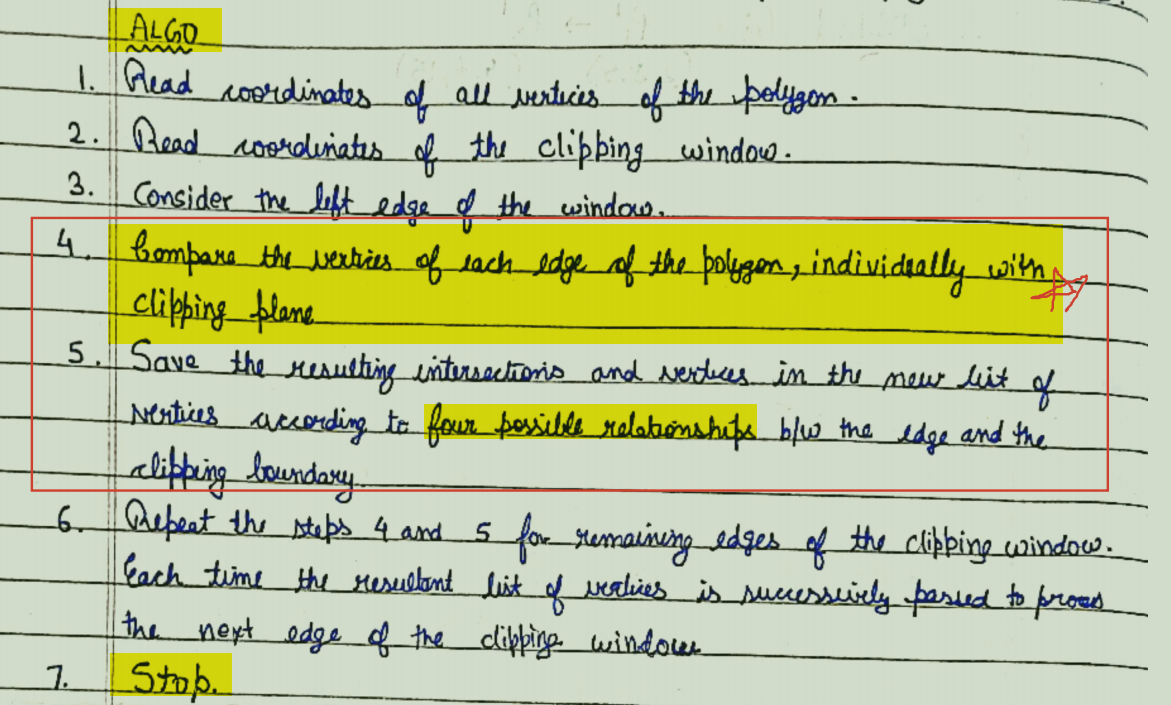 ALGO
1. Read coordinates of all vertices of the polygon.
2. Read coordinates of the clipping window.
3. Consider the left edge of the window.
4. Compare the vertices of each edge of the polygon, individually with
clipping plane
5. Save the resulting intersections and vertices in the new list of
vertices according to four possible relationships b/w the edge and the
clipping boundary.
6. Repeat the steps 4 and 5 for remaining edges of the clipping window.
Each time the resultant list of vertices is successively passed to process
the next edge of the clipping window
7. Stop.